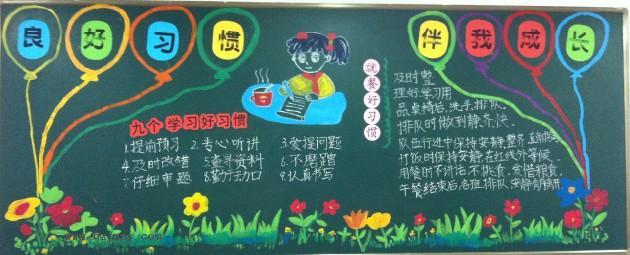 良好习惯
伴我成长
九个学习好习惯
1.提前预习 2.专心听讲 3.爱提问题
4.及时改错 5.查寻资料 6.不磨蹭
7.仔细审题 8.勤于动口 9.认真书写
就餐好习惯
及时整
理好学习用
品,桌椅后,洗手,排队。
排队时做到静、齐、快。
队伍行进中保持安静,整齐
打饭时保持安静,在红线外等候。
用餐时不讲话,不挑食,爱惜粮食。
午餐结束后,各班排队安静